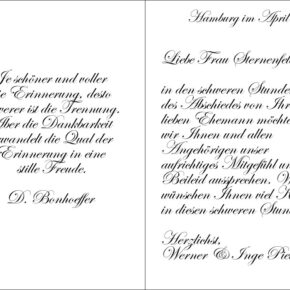 Je schöner und voller
die Erinnerung, desto
ist die Trennung.
Aber die Dankbarkeit
die Qual der
Erinnerung in eine
stille Freude.
D. Bonhoeffer
Hamburg im April
Liebe Frau
in den schweren Stunden
des Abschiedes von Ihrem
lieben Ehemann möchten
wir Ihnen und allen
Angehörigen unser
aufrichtiges Mitgefühl und
Beileid aussprechen. Wir
wünschen Ihnen viel
in diesen schweren Stunden
Herzlichst,
Werner & Inge